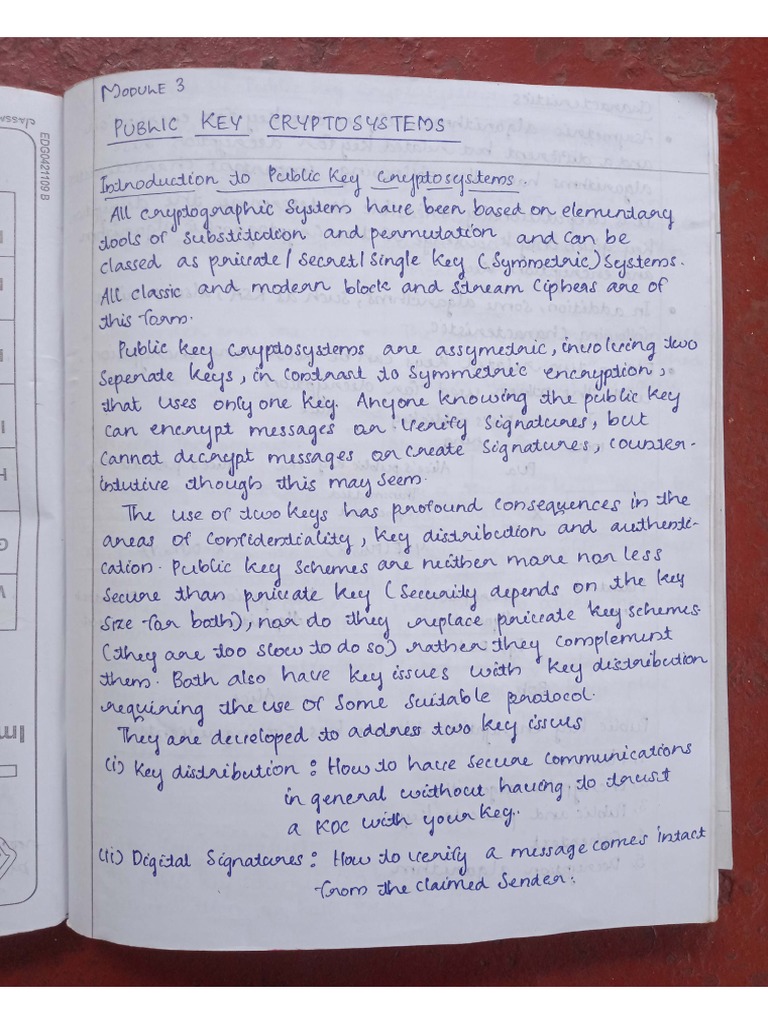 MODULE 3
PUBLIC KEY CRYPTOSYSTEMS
Introduction to Public Key Cryptosystems.
All cryptographic Systems have been based on elementary
tools of substitution and permutation and can be
classed as private/Secret/Single key (Symmetric) Systems.
All classic and modern block and stream Ciphers are of
this form.
Public key cryptosystems are assymetric, involving two
Seperate keys, in contrast to symmetric encryption,
that uses only one key. Anyone knowing the public key
can encrypt messages or verify signatures, but
cannot decrypt messages or create signatures, counter-
intutive though this may seem.
The use of two keys has profound consequences in the
areas of confidentiality, key distribution and authenti-
cation. Public key schemes are neither more nor less
secure than private key (security depends on the key
size for both), nor do they replace private key schemes
(they are too slow to do so) rather they complement
them. Both also have key issues with key distribution
requiring the use of some suitable protocol.
They are developed to address two key issues
(i) Key distribution : How to have secure communications
in general without having to trust
a KDC with your key.
(ii) Digital Signatures : How to verify a message comes intact
from the claimed sender.
EDG0421109 B
classm
Im